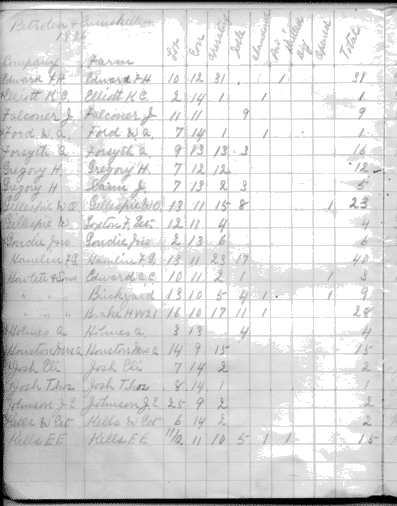 Petrolea & Enniskillen
1926
Company Farm Lot Con Operating Idle Abandoned Total
Edward F H Edward F H 10 12 31 1 38
Elliott K C. Elliott K C. 2 14 1 1 1
Falconer J Falconer J 11 11 9 9
Ford W a. Ford W a. 7 14 1 1 1
Forsyth a Forsyth a. 9 13 13 3 16
Gregory H. Gregory H. 7 12 12 12
Gregory H J. 7 13 2 3 5
Gillespie W a Gillespie W a 13 11 15 8 1 23
Gillespie W. 12 11 4 4
Goudie Jno Goudie Jno 2 13 6 6
Hamlin F G Hamlin F G 13 11 23 17 40
Howlett & Sons Edward a C 10 11 2 1 1 3
" " " Brickyard 13 10 5 4 1 1 9
" " " Brake H W 21 16 10 17 11 1 28
Holmes a Holmes a. 3 13 4 4
Houston Mrs a Houston Mrs a 14 9 15 15
Josh Eli Josh Eli 7 14 2 2
Josh Thos Josh Thos 8 14 1 1
Johnson J E Johnson J E. 25 9 2 2
Kells W Est Kells W Est 6 14 2 2
Kells E E Kells E E 11/12 11 10 5 1 1 15